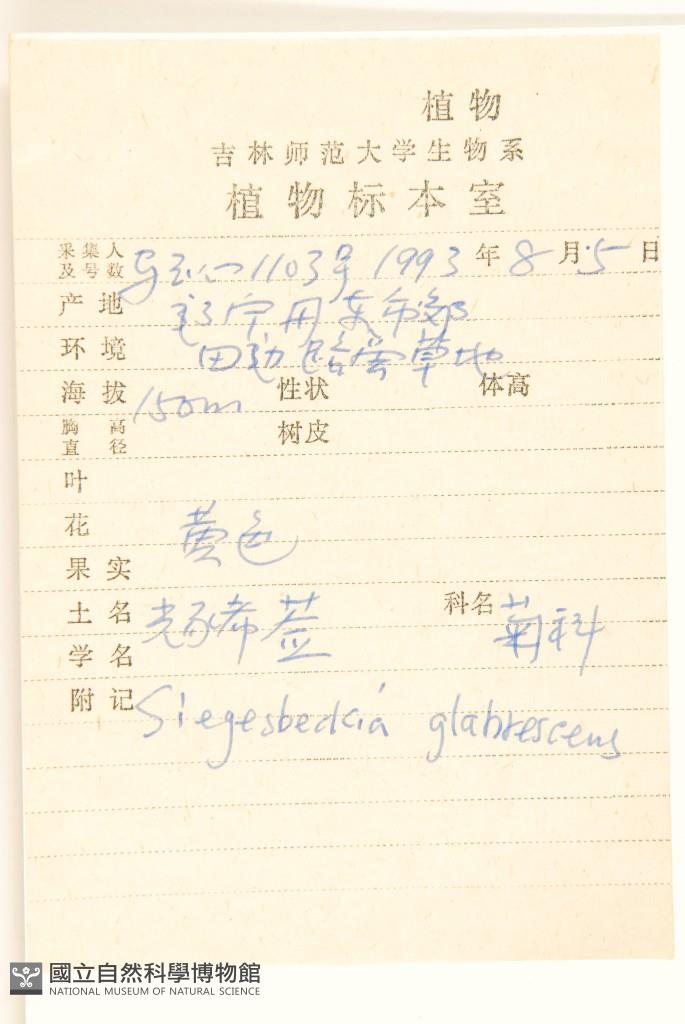 植物
吉林师范大学生物系
植物标本室
采集人及号数 1103号 1993年8月5日
产地
环境 田边路旁草地
海拔 150m 性状 体高
胸高直径 树皮
叶
花 黄色
果实
土名 光豨莶 科名 菊科
学名
附记 Siegesbeckia glabrescens
國立自然科學博物館
NATIONAL MUSEUM OF NATURAL SCIENCE